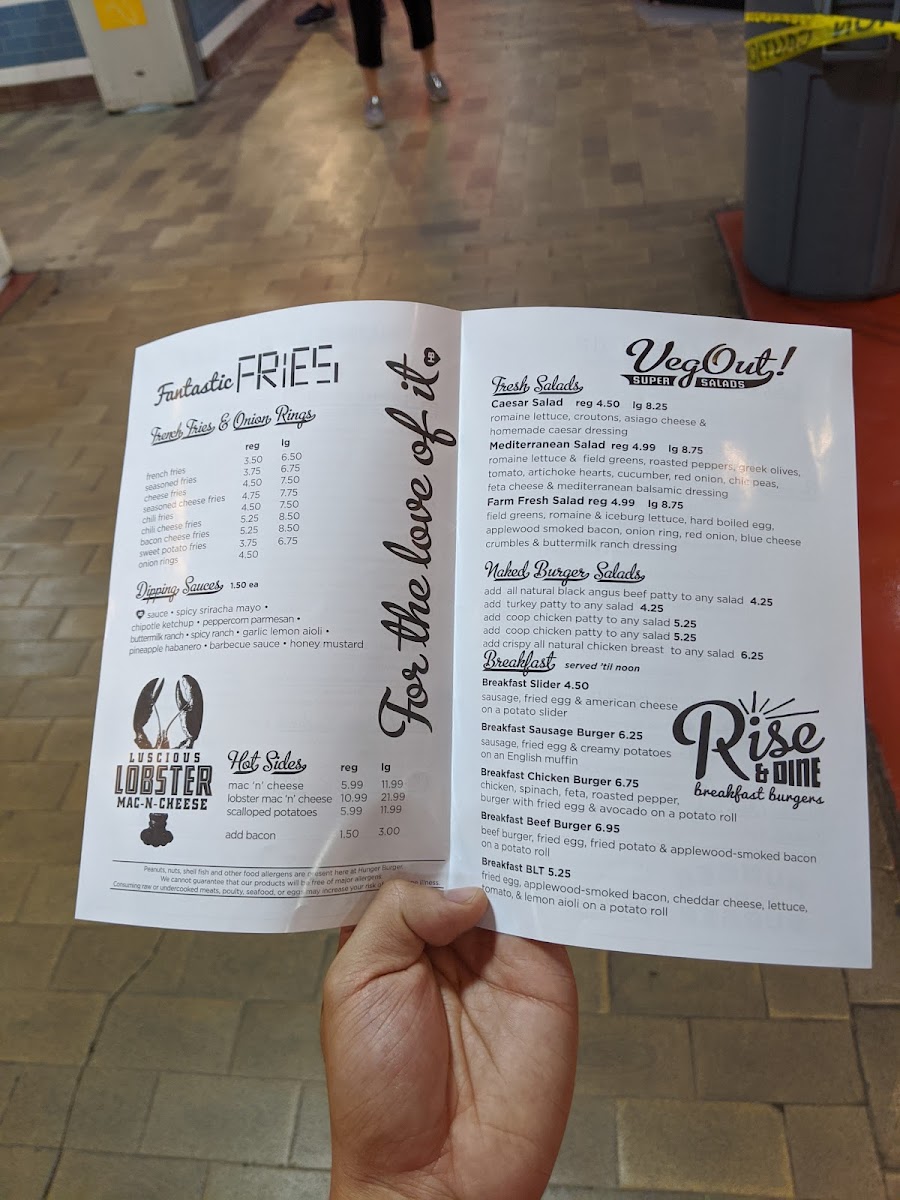 Fantastic FRIES
French Fries & Onion Rings
reg lg
french fries 3.50 6.50
seasoned fries 3.75 6.75
cheese fries 4.50 7.50
seasoned cheese fries 4.75 7.75
chili fries 4.50 7.50
chili cheese fries 5.25 8.50
bacon cheese fries 5.25 8.50
sweet potato fries 3.75 6.75
onion rings 4.50
Dipping Sauces 1.50 ea
sauce • spicy sriracha mayo •
chipotle ketchup • peppercorn parmesan •
buttermilk ranch • spicy ranch • garlic lemon aioli •
pineapple habanero • barbecue sauce • honey mustard
LUSCIOUS
LOBSTER
MAC-N-CHEESE
Hot Sides reg lg
mac 'n' cheese 5.99 11.99
lobster mac 'n' cheese 10.99 21.99
scalloped potatoes 5.99 11.99
add bacon 1.50 3.00
Peanuts, nuts, shell fish and other food allergens are present here at Hunger Burger
We cannot guarantee that our products will be free of major allergens
Consuming raw or undercooked meats, poulty, seafood, or eggs may increase your risk of illness.
For the love of it HB
VegOut!
SUPER SALADS
Fresh Salads
Caesar Salad reg 4.50 lg 8.25
romaine lettuce, croutons, asiago cheese &
homemade caesar dressing
Mediterranean Salad reg 4.99 lg 8.75
romaine lettuce & field greens, roasted peppers, greek olives,
tomato, artichoke hearts, cucumber, red onion, chic peas,
feta cheese & mediterranean balsamic dressing
Farm Fresh Salad reg 4.99 lg 8.75
field greens, romaine & iceburg lettuce, hard boiled egg,
applewood smoked bacon, onion ring, red onion, blue cheese
crumbles & buttermilk ranch dressing
Naked Burger Salads
add all natural black angus beef patty to any salad 4.25
add turkey patty to any salad 4.25
add coop chicken patty to any salad 5.25
add coop chicken patty to any salad 5.25
add crispy all natural chicken breast to any salad 6.25
Breakfast served 'til noon
Breakfast Slider 4.50
sausage, fried egg & american cheese
on a potato slider
Breakfast Sausage Burger 6.25
sausage, fried egg & creamy potatoes
on an English muffin
Breakfast Chicken Burger 6.75
chicken, spinach, feta, roasted pepper,
burger with fried egg & avocado on a potato roll
Breakfast Beef Burger 6.95
beef burger, fried egg, fried potato & applewood-smoked bacon
on a potato roll
Breakfast BLT 5.25
fried egg, applewood-smoked bacon, cheddar cheese, lettuce,
tomato, & lemon aioli on a potato roll
Rise
& DINE
breakfast burgers